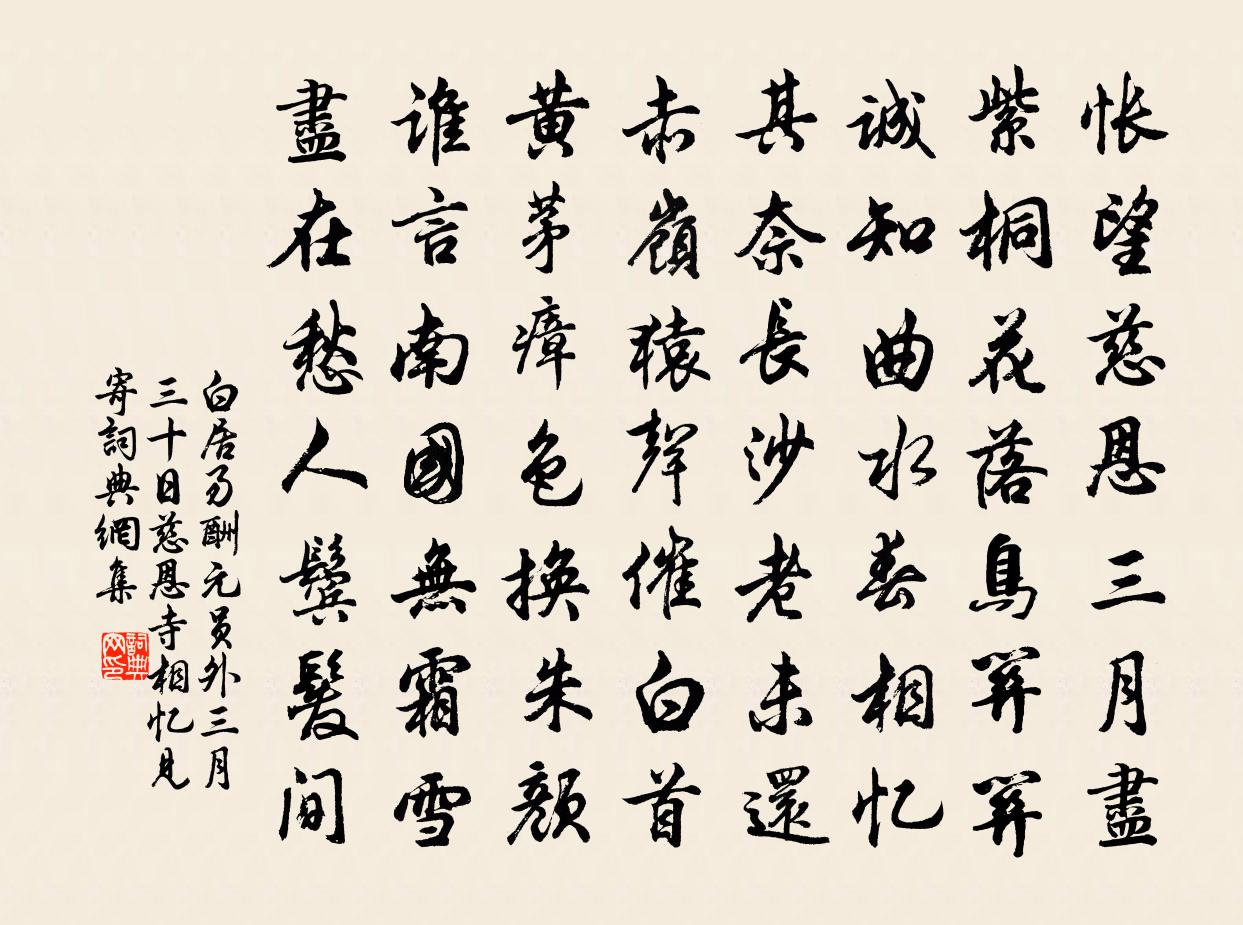 悵望慈恩三月盡
紫桐花落鳥關關
誠知曲水春相憶
其奈長沙老未還
赤嶺猿聲催白首
黃茅瘴色換朱顏
誰言南國無霜雪
盡在愁人鬢髮間
白居易酬元員外三月
三十日慈恩寺相憶見
寄詞典網集
詞典
网印